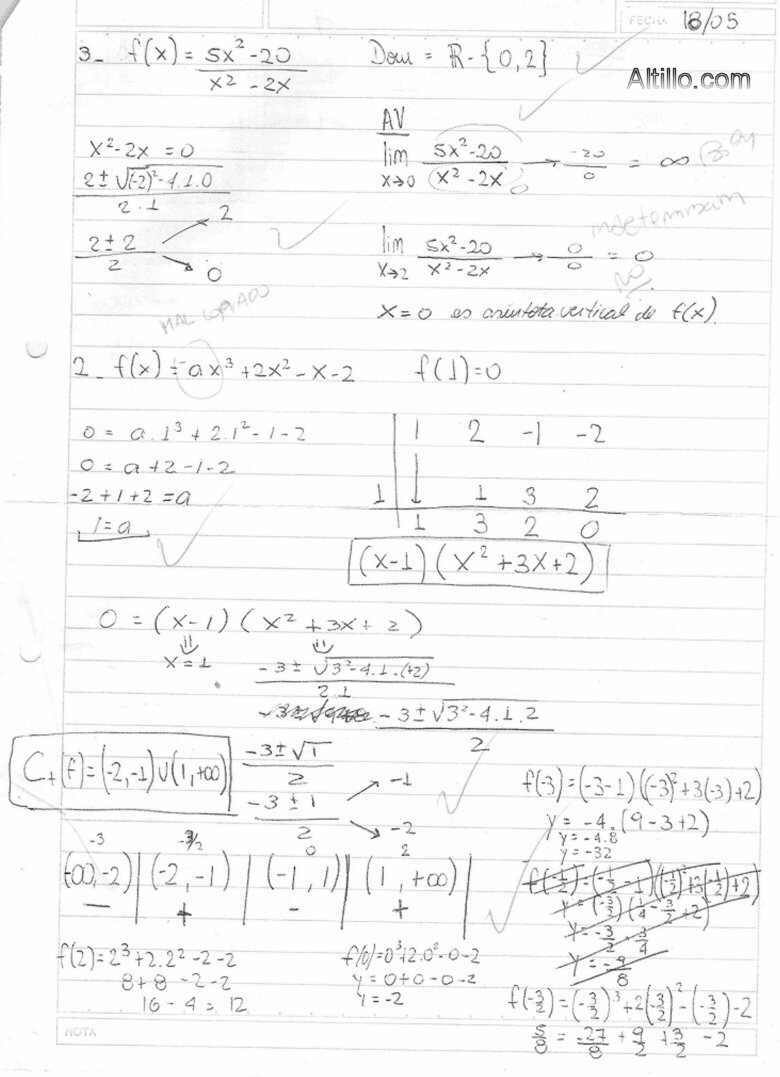 FECHA 18/05
3- f(x) = 5x² - 20 / x² - 2x
Dom = ℝ - {0,2}
Altillo.com
x² - 2x = 0
2 ± √(-2)² - 4.1.0 / 2.1
2 ± 2 / 2
2
0
AV
lim x→0 5x² - 20 / (x² - 2x) → -20 / 0 = ∞
0
indeterminación
lim x→2 5x² - 20 / x² - 2x → 0 / 0 = 0
NO
x = 0 es asíntota vertical de f(x).
MAL COPIADO
2- f(x) = ax³ + 2x² - x - 2
f(1) = 0
0 = a.1³ + 2.1² - 1 - 2
0 = a + 2 - 1 - 2
-2 + 1 + 2 = a
1 = a
1 2 -1 -2
1 1 1 3 2
1 3 2 0
(x-1) (x² + 3x + 2)
0 = (x-1) (x² + 3x + 2)
x = 1
-3 ± √3² - 4.1.(+2) / 2.1
-3 ± √3² - 4.1.2 / 2
C₊(f) = (-2,-1) ∪ (1,+∞)
-3 ± √1 / 2
-3 ± 1 / 2
-1
-2
f(-3) = (-3-1) ((-3)² + 3(-3) + 2)
y = -4.(9 - 3 + 2)
y = -4.8
y = -32
-3 -3/2 0 2
(-∞,-2) | (-2,-1) | (-1,1) | (1,+∞)
- + - +
f(-1/2) = (-1/2 - 1) ((-1/2)² + 3(-1/2) + 2)
y = (-3/2) (1/4 - 3/2 + 2)
y = -3/2 . 3/4
y = -9/8
f(2) = 2³ + 2.2² - 2 - 2
8 + 8 - 2 - 2
16 - 4 = 12
f(0) = 0³ + 2.0² - 0 - 2
y = 0 + 0 - 0 - 2
y = -2
f(-3/2) = (-3/2)³ + 2(-3/2)² - (-3/2) - 2
5/8 = -27/8 + 9/2 + 3/2 - 2
NOTA